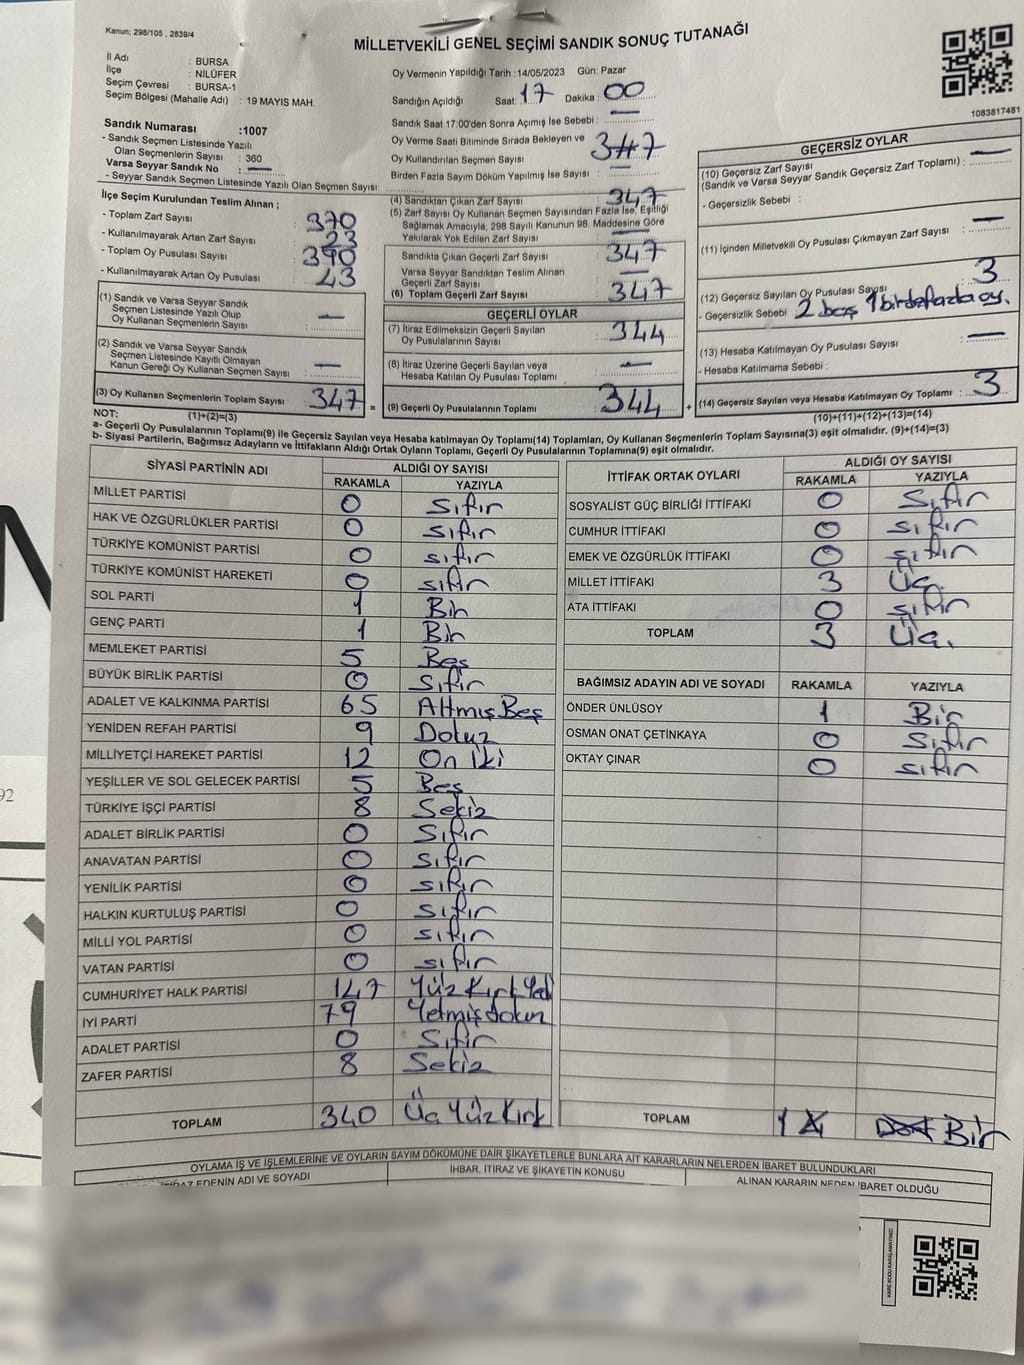 Kanun; 298/105 , 2839/4
MİLLETVEKİLİ GENEL SEÇİMİ SANDIK SONUÇ TUTANAĞI
1083817481
İl Adı : BURSA
İlçe : NİLÜFER
Seçim Çevresi : BURSA-1
Seçim Bölgesi (Mahalle Adı) : 19 MAYIS MAH.
Sandık Numarası :1007
- Sandık Seçmen Listesinde Yazılı
Olan Seçmenlerin Sayısı : 360
Varsa Seyyar Sandık No : —
- Seyyar Sandık Seçmen Listesinde Yazılı Olan Seçmen Sayısı:
Oy Vermenin Yapıldığı Tarih :14/05/2023 Gün: Pazar
Sandığın Açıldığı Saat: 17 Dakika : 00
Sandık Saat 17:00'den Sonra Açımış İse Sebebi : —
Oy Verme Saati Bitiminde Sırada Bekleyen ve
Oy Kullandırılan Seçmen Sayısı
Birden Fazla Sayım Döküm Yapılmış İse Sayısı : —
İlçe Seçim Kurulundan Teslim Alınan ;
- Toplam Zarf Sayısı 370
- Kullanılmayarak Artan Zarf Sayısı 23
- Toplam Oy Pusulası Sayısı 390
- Kullanılmayarak Artan Oy Pusulası 43
(1) Sandık ve Varsa Seyyar Sandık
Seçmen Listesinde Yazılı Olup
Oy Kullanan Seçmenlerin Sayısı : —
(2) Sandık ve Varsa Seyyar Sandık
Seçmen Listesinde Kayıtlı Olmayan
Kanun Gereği Oy Kullanan Seçmen Sayısı : —
(3) Oy Kullanan Seçmenlerin Toplam Sayısı : 347 =
(4) Sandıktan Çıkan Zarf Sayısı : 347
(5) Zarf Sayısı Oy Kullanan Seçmen Sayısından Fazla İse, Eşitliği
Sağlamak Amacıyla, 298 Sayılı Kanunun 98. Maddesine Göre
Yakılarak Yok Edilen Zarf Sayısı : —
Sandıkta Çıkan Geçerli Zarf Sayısı : 347
Varsa Seyyar Sandıktan Teslim Alınan
Geçerli Zarf Sayısı : —
(6) Toplam Geçerli Zarf Sayısı : 347
GEÇERLİ OYLAR
(7) İtiraz Edilmeksizin Geçerli Sayılan
Oy Pusulalarının Sayısı : 344
(8) İtiraz Üzerine Geçerli Sayılan veya
Hesaba Katılan Oy Pusulası Toplamı : —
(9) Geçerli Oy Pusulalarının Toplamı : 344 +
GEÇERSİZ OYLAR
(10) Geçersiz Zarf Sayısı
(Sandık ve Varsa Seyyar Sandık Geçersiz Zarf Toplamı) : —
- Geçersizlik Sebebi :
(11) İçinden Milletvekili Oy Pusulası Çıkmayan Zarf Sayısı : —
(12) Geçersiz Sayılan Oy Pusulası Sayısı : 3
- Geçersizlik Sebebi 2 boş 1 birden fazla oy.
(13) Hesaba Katılmayan Oy Pusulası Sayısı : —
- Hesaba Katılmama Sebebi :
(14) Geçersiz Sayılan veya Hesaba Katılmayan Oy Toplamı : 3
NOT: (1)+(2)=(3)
(10)+(11)+(12)+(13)=(14)
a- Geçerli Oy Pusulalarının Toplamı(9) ile Geçersiz Sayılan veya Hesaba katılmayan Oy Toplamı(14) Toplamları, Oy Kullanan Seçmenlerin Toplam Sayısına(3) eşit olmalıdır. (9)+(14)=(3)
b- Siyasi Partilerin, Bağımsız Adayların ve İttifakların Aldığı Ortak Oyların Toplamı, Geçerli Oy Pusulalarının Toplamına(9) eşit olmalıdır.
SİYASİ PARTİNİN ADI ALDIĞI OY SAYISI
RAKAMLA YAZIYLA
MİLLET PARTİSİ 0 Sıfır
HAK VE ÖZGÜRLÜKLER PARTİSİ 0 sıfır
TÜRKİYE KOMÜNİST PARTİSİ 0 sıfır
TÜRKİYE KOMÜNİST HAREKETİ 0 sıfır
SOL PARTİ 1 Bir
GENÇ PARTİ 1 Bir
MEMLEKET PARTİSİ 5 Beş
BÜYÜK BİRLİK PARTİSİ 0 Sıfır
ADALET VE KALKINMA PARTİSİ 65 Altmış Beş
YENİDEN REFAH PARTİSİ 9 Dokuz
MİLLİYETÇİ HAREKET PARTİSİ 12 On iki
YEŞİLLER VE SOL GELECEK PARTİSİ 5 Beş
TÜRKİYE İŞÇİ PARTİSİ 8 Sekiz
ADALET BİRLİK PARTİSİ 0 Sıfır
ANAVATAN PARTİSİ 0 sıfır
YENİLİK PARTİSİ 0 sıfır
HALKIN KURTULUŞ PARTİSİ 0 sıfır
MİLLİ YOL PARTİSİ 0 sıfır
VATAN PARTİSİ 0 sıfır
CUMHURİYET HALK PARTİSİ 147 Yüz Kırk Yedi
İYİ PARTİ 79 Yetmişdokuz
ADALET PARTİSİ 0 Sıfır
ZAFER PARTİSİ 8 Sekiz
TOPLAM 340 Üç Yüz Kırk
İTTİFAK ORTAK OYLARI ALDIĞI OY SAYISI
RAKAMLA YAZIYLA
SOSYALİST GÜÇ BİRLİĞİ İTTİFAKI 0 Sıfır
CUMHUR İTTİFAKI 0 sıfır
EMEK VE ÖZGÜRLÜK İTTİFAKI 0 sıfır
MİLLET İTTİFAKI 3 Üç
ATA İTTİFAKI 0 sıfır
TOPLAM 3 Üç.
BAĞIMSIZ ADAYIN ADI VE SOYADI RAKAMLA YAZIYLA
ÖNDER ÜNLÜSOY 1 Bir
OSMAN ONAT ÇETİNKAYA 0 Sıfır
OKTAY ÇINAR 0 sıfır
TOPLAM 1 Bir
OYLAMA İŞ VE İŞLEMLERİNE VE OYLARIN SAYIM DÖKÜMÜNE DAİR ŞİKAYETLERLE BUNLARA AİT KARARLARIN NELERDEN İBARET BULUNDUKLARI
EDENİN ADI VE SOYADI İHBAR, İTİRAZ VE ŞİKAYETİN KONUSU ALINAN KARARIN NEDEN İBARET OLDUĞU
KARE KODU KARALAMAYINIZ!
92